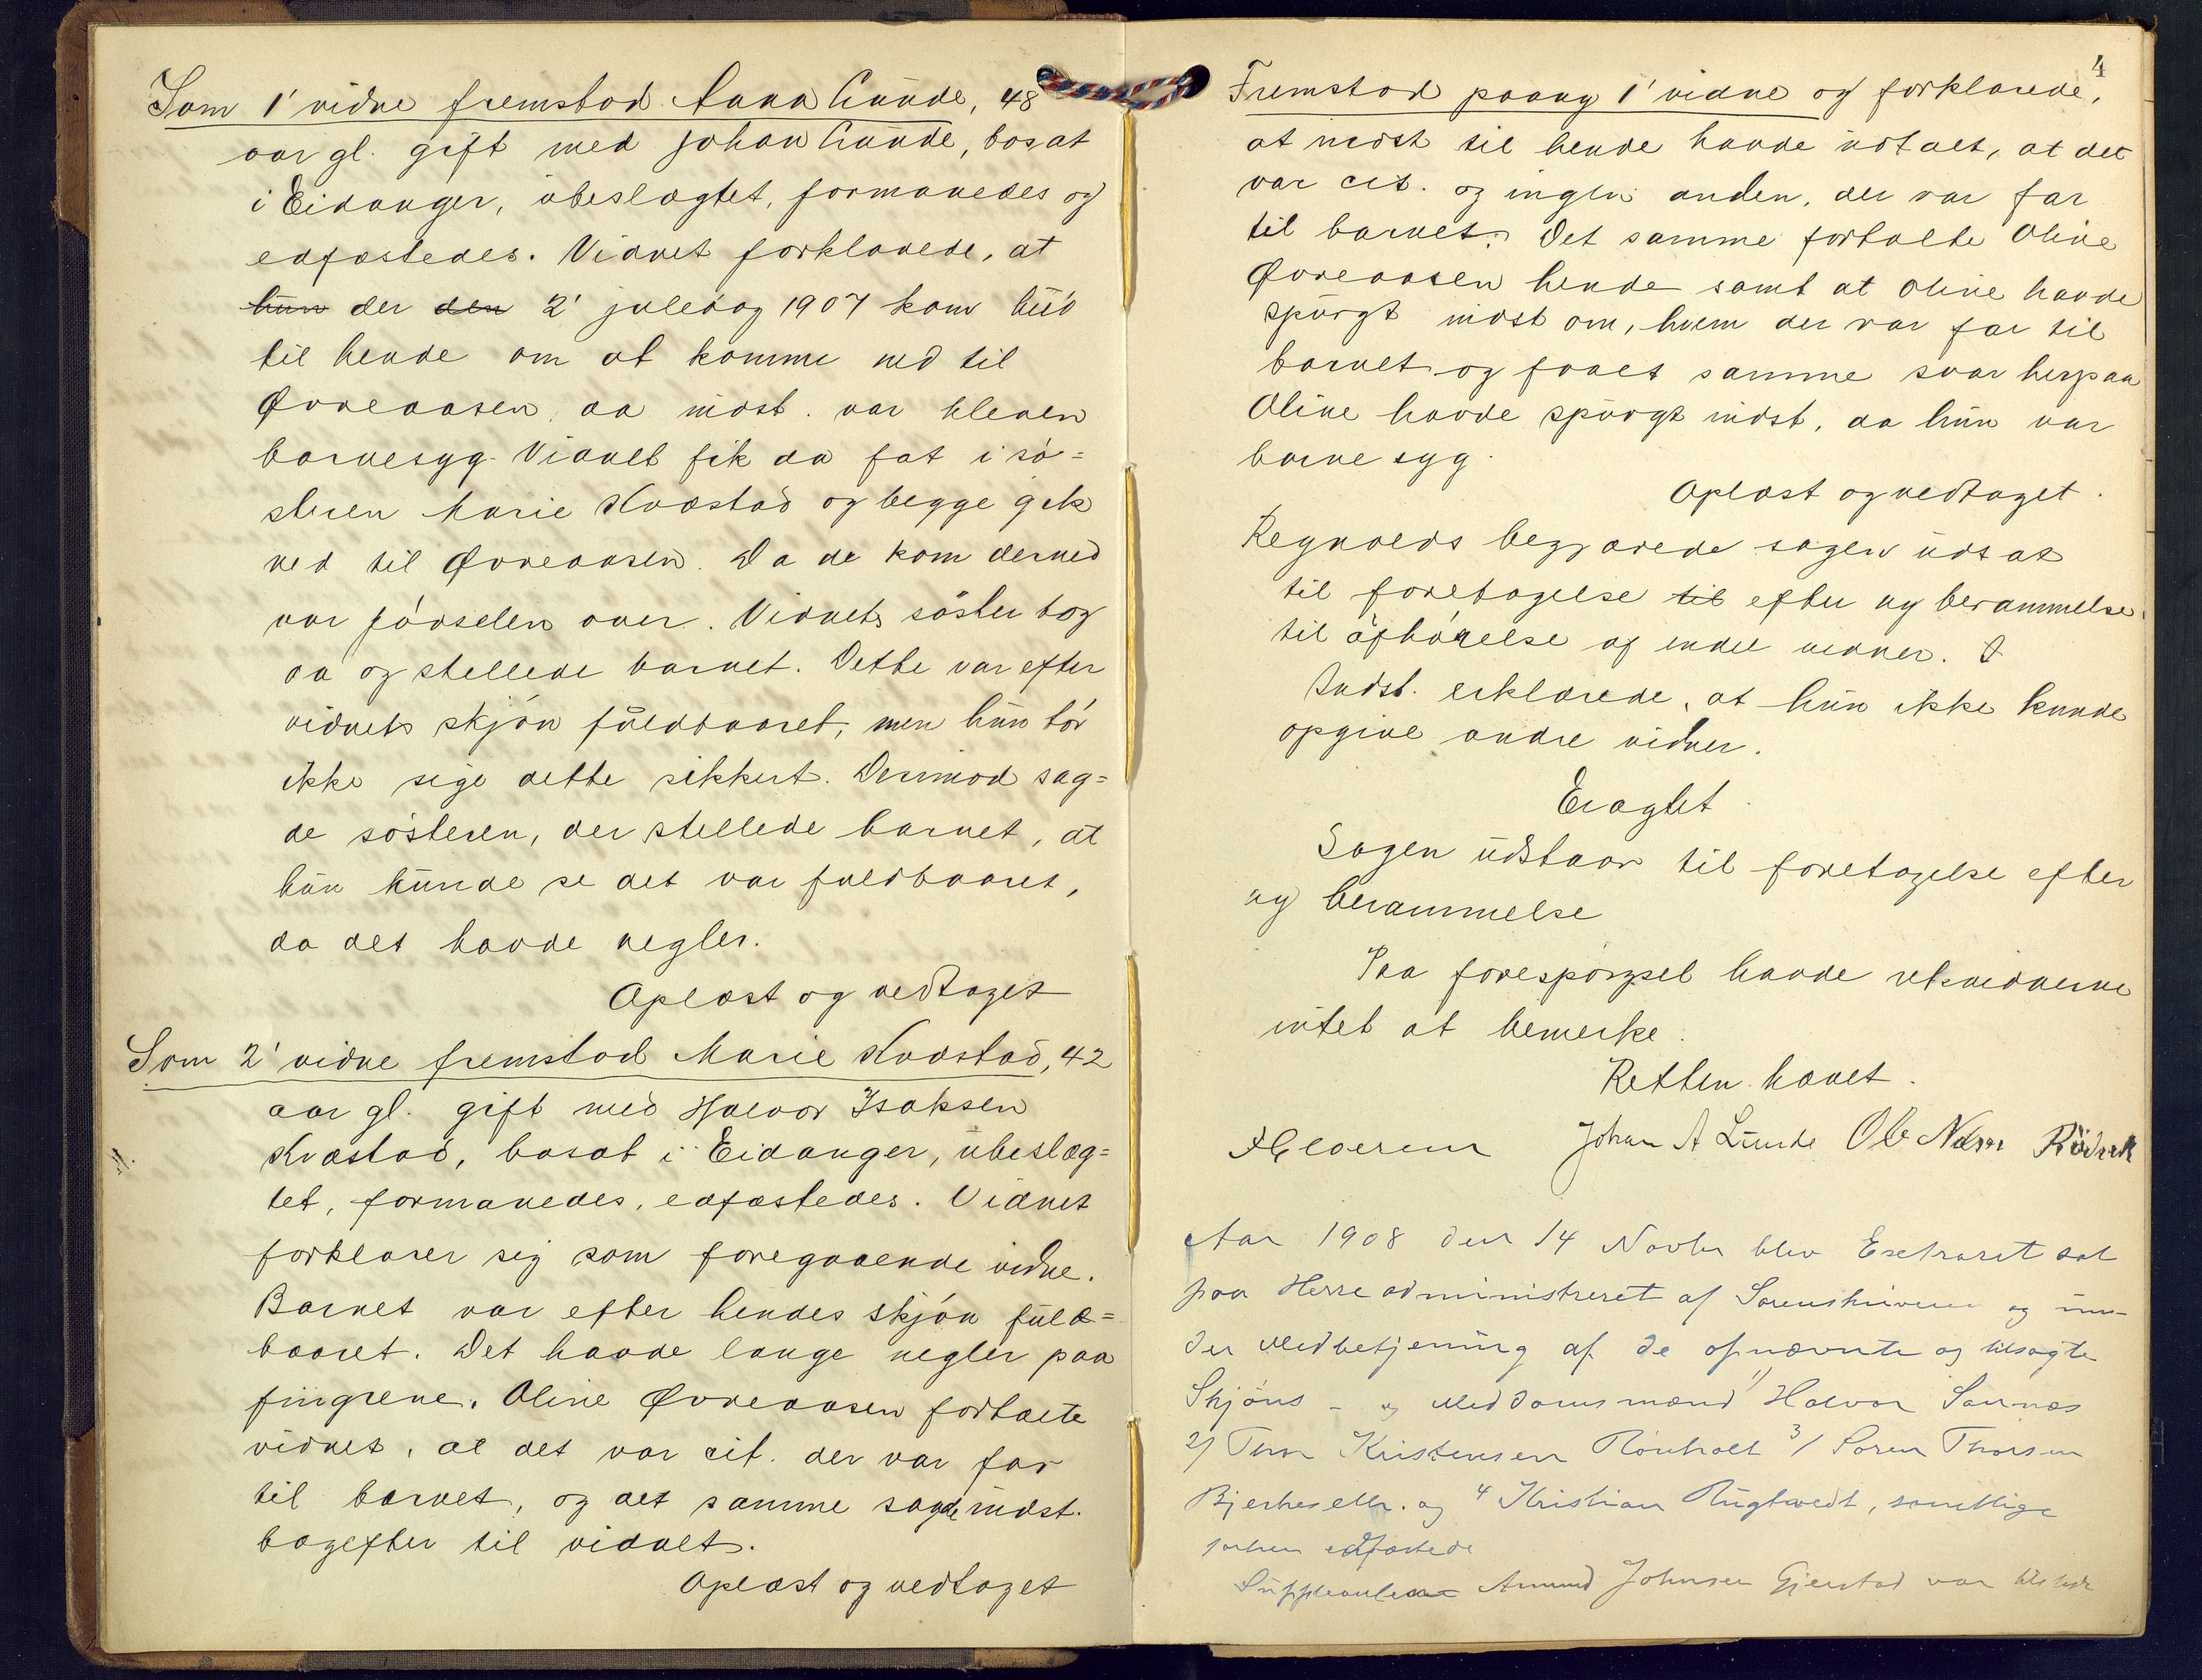 Som 1' vidne fremstod Anna Lunde, 48
aar gl. gift med Johan Lunde, bosat
i Eidanger, ubeslægtet, formanedes og
edfæstedes. Vidnet forklarede, at
hun der den 2' juledag 1907 kom bud
til hende om at komme ned til
Øvreaasen, da indst. var bleven
barnesyg. Vidnet fik da fat i sø=
steren Marie Kvæstad og begge gik
ned til Øvreaasen. Da de kom derned
var fødselen over. Vidnets søster tog
da og stellede barnet. Dette var efter
vidnets skjøn fuldbaaret, men hun tør
ikke sige dette sikkert. Derimod sag=
de søsteren, der stellede barnet, at
hun kunde se det var fuldbaaret,
da det havde negler.
Oplæst og vedtaget
Som 2' vidne fremstod Marie Kvæstad, 42
aar gl. gift med Halvor Isaksen
Kvæstad, bosat i Eidanger, ubeslæg=
tet, formanedes, edfæstedes. Vidnet
forklarer sig som foregaaende vidne.
Barnet var efter hendes skjøn fuld=
baaret. Det havde lange negler paa
fingrene. Oline Øvreaasen fortalte
vidnet, at det var cit. der var far
til barnet, og det samme sagde indst.
bagefter til vidnet.
Oplæst og vedtaget
4
Fremstod paany 1' vidne og forklarede,
at indst til hende havde udtalt, at det
var cit. og ingen anden, der var far
til barnet. Det samme fortalte Oline
Øvreaasen hende samt at Oline havde
spurgt indst om, hvem der var far til
barnet og faaet samme svar herpaa
Oline havde spurgt indst, da hun var
barnesyg.
Oplæst og vedtaget.
begjærede sagen udsat
til foretagelse til efter ny berammelse
til afhørelse af endel vidner.
Indst. erklærede, at hun ikke kunde
opgive andre vidner.
Eragtet
Sagen udstaar til foretagelse efter
ny berammelse
Paa forespørgsel havde retsvidnerne
intet at bemerke.
Retten hævet.
Johan A Lunde Ole Næss
Aar 1908 den 14 Novbr blev Extraret sat
paa Herre administreret af Sorenskriveren og un-
der Medbetjening af de opnævnte og tilsagte
Skjøns- og Meddomsmænd 1/ Halvor Sannæs
2/ Thor Kristensen Rønholt 3/ Søren Thorsen
og 4 Kristian Rugtvedt, samtlige
forhen edfæstede
Amund Johnsen Gjerstad var tilstede